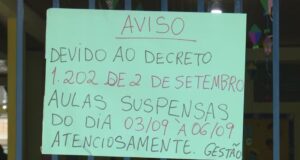 AVISO
DEVIDO AO DECRETO
1.202 DE 2 DE SETEMBRO
AULAS SUSPENSAS
DO DIA 03/09 À 06/09
ATENCIOSAMENTE. GESTÃO